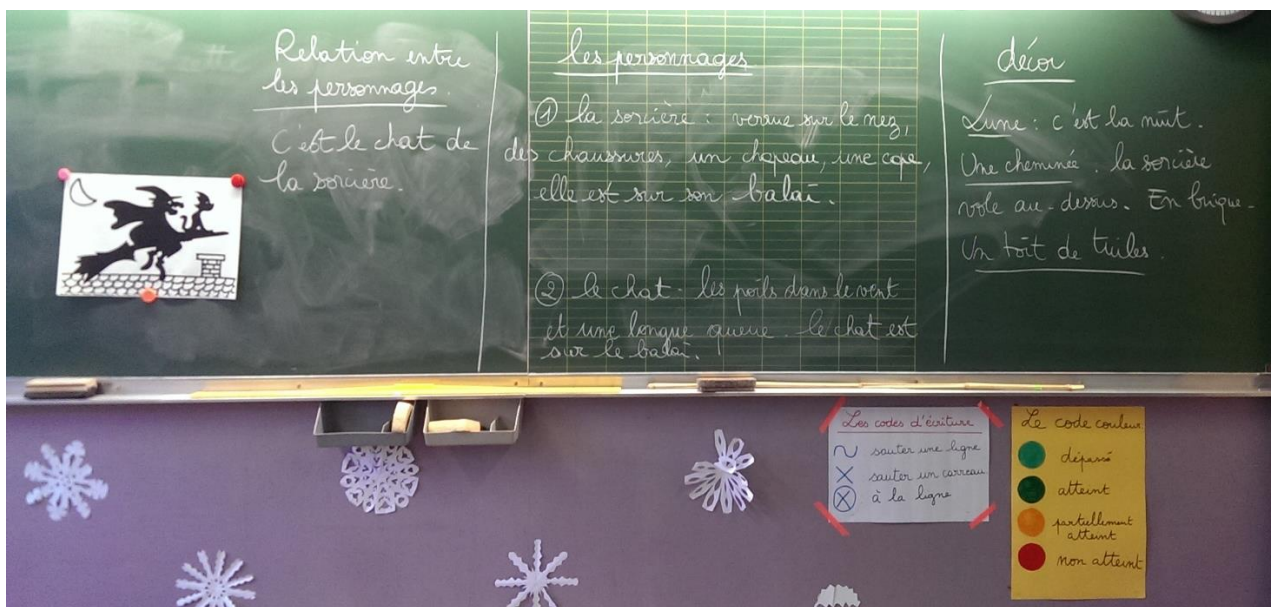 Relation entre
les personnages.
C'est le chat de
la sorcière.
les personnages
① la sorcière : verrue sur le nez,
des chaussures, un chapeau, une cape,
elle est sur son balai.
② le chat - les poils dans le vent
et une longue queue. le chat est
sur le balai.
décor
Lune : c'est la nuit.
Une cheminée. la sorcière
vole au-dessus. En brique.
Un toit de tuiles.
Les codes d'écriture
sauter une ligne
sauter un carreau
à la ligne
Le code couleur
dépassé
atteint
partiellement
atteint
non atteint